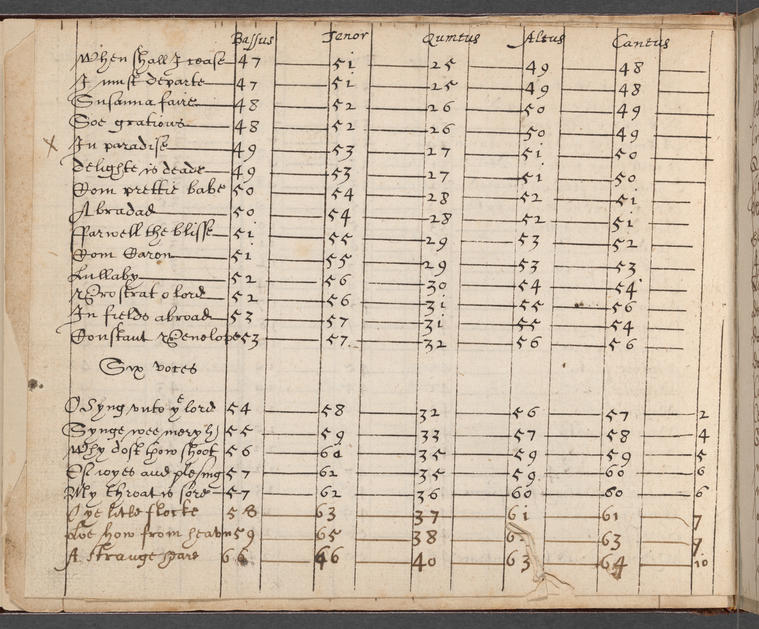 Bassus Tenor Quintus Altus Cantus
When shall I cease 47 51 25 49 48
I must departe 47 51 25 49 48
Susanna faire 48 52 26 50 49
Soe gratious 48 52 26 50 49
X In paradise 49 53 27 51 50
delighte is deade 49 53 27 51 50
Com prettie babe 50 54 28 52 51
Abradad 50 54 28 52 51
ffarwell the blisse 51 55 29 53 52
Com Caron 51 55 29 53 53
Lullaby 52 56 30 54 54
Prostrat o lord 52 56 31 55 56
In fields abroad 53 57 31 55 54
Constant Penelope 53 57 32 56 56
Six voices
O Syng vnto ye lord 54 58 32 56 57 2
Synge wee mery 55 59 33 57 58 4
Why dost thow shoot 56 60 35 59 59 5
and plesing 57 62 35 59 60 6
My throat is sore 57 62 36 60 60 6
O ye litle flocke 58 63 37 61 61 7
Loe how from heavn 59 65 38 63 7
A Strange 66 40 63 64 10